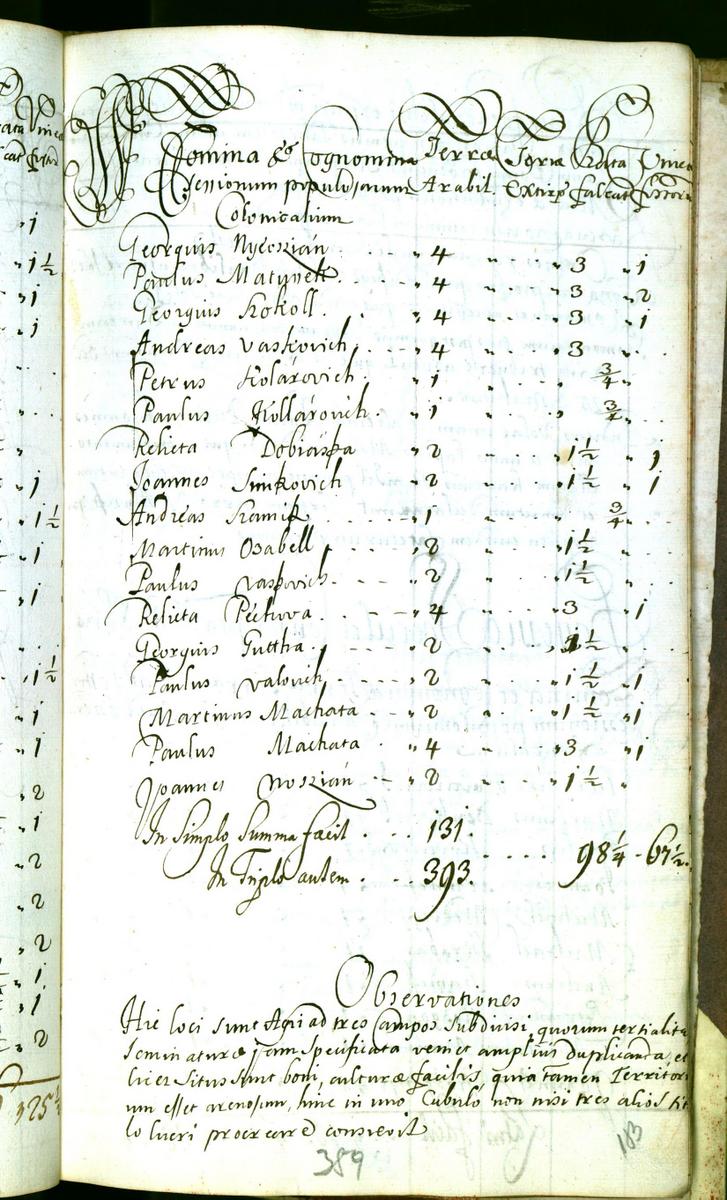 Nomina & Cognomina Terræ Terræ Prata Vinea
Sessionum populosarum Arabil. Extirp falcat fossor
Colonicalium
Georgius Nyioszián . . . „ 4 „ . . „ 3 „ 1
Paulus Matynek . . . „ 4 „ . . „ 3 „ 2
Georgius Kokoll . . „ 4 „ . . „ 3 „ 1
Andreas Vaskovich . . „ 4 „ . . „ 3 . . .
Petrus Kolárovich . . „ 1 „ . . „ 3/4 „
Paulus Kollárovich . „ 1 „ . . „ 3/4 „
Relicta Dobiaska „ 2 „ . . „ 1 1/2 „ 1
Joannes Simkovich „ 2 „ . . „ 1 1/2 „ 1
Andreas Kramik . . . „ 1 „ . . „ 3/4 „ .
Martinus Osabell . . . „ 2 „ . . „ 1 1/2 . .
Paulus Vaskovich . . . „ 2 „ . . „ 1 1/2 „ . .
Relicta Pechova . . . „ 4 „ . . „ 3 „ 1
Georgius Guttha . . . „ 2 „ . . „ 1 1/2 „ .
Paulus Valovich . . . „ 2 „ . . „ 1 1/2 „ 1
Martinus Machata . . „ 2 „ . . „ 1 1/2 „ 1
Paulus Machata . „ 4 „ . . „ 3 „ 1
Joannes Noszián . . „ 2 „ . . „ 1 1/2 „
In Simplo Summa facit . . . 131 .
. . . . . 98 1/4 - 67 1/2 .
In Triplo autem . . . 393 .
Observationes
Hic loci sunt Agri ad tres Campos Subdivisi, quorum tertialitas
Seminaturæ jam specificata venit amplius duplicanda, et
licet situs sint boni, culturæ facilis, quia tamen Territori
um esset arenosum, hinc in uno Cubulo non nisi tres alios tit
lo lucri procreare consvevit
389
183
„ 1
„ 1 1/2
„ 1
„ 1
„ 1
„ 1 1/2
„ 1
„ 1
„ 1 1/2
„ 1
„ 1
„ 2
„ 1
„ 2
„ 2
„ 2
„ 1
„ 1
„ 2
325 1/2